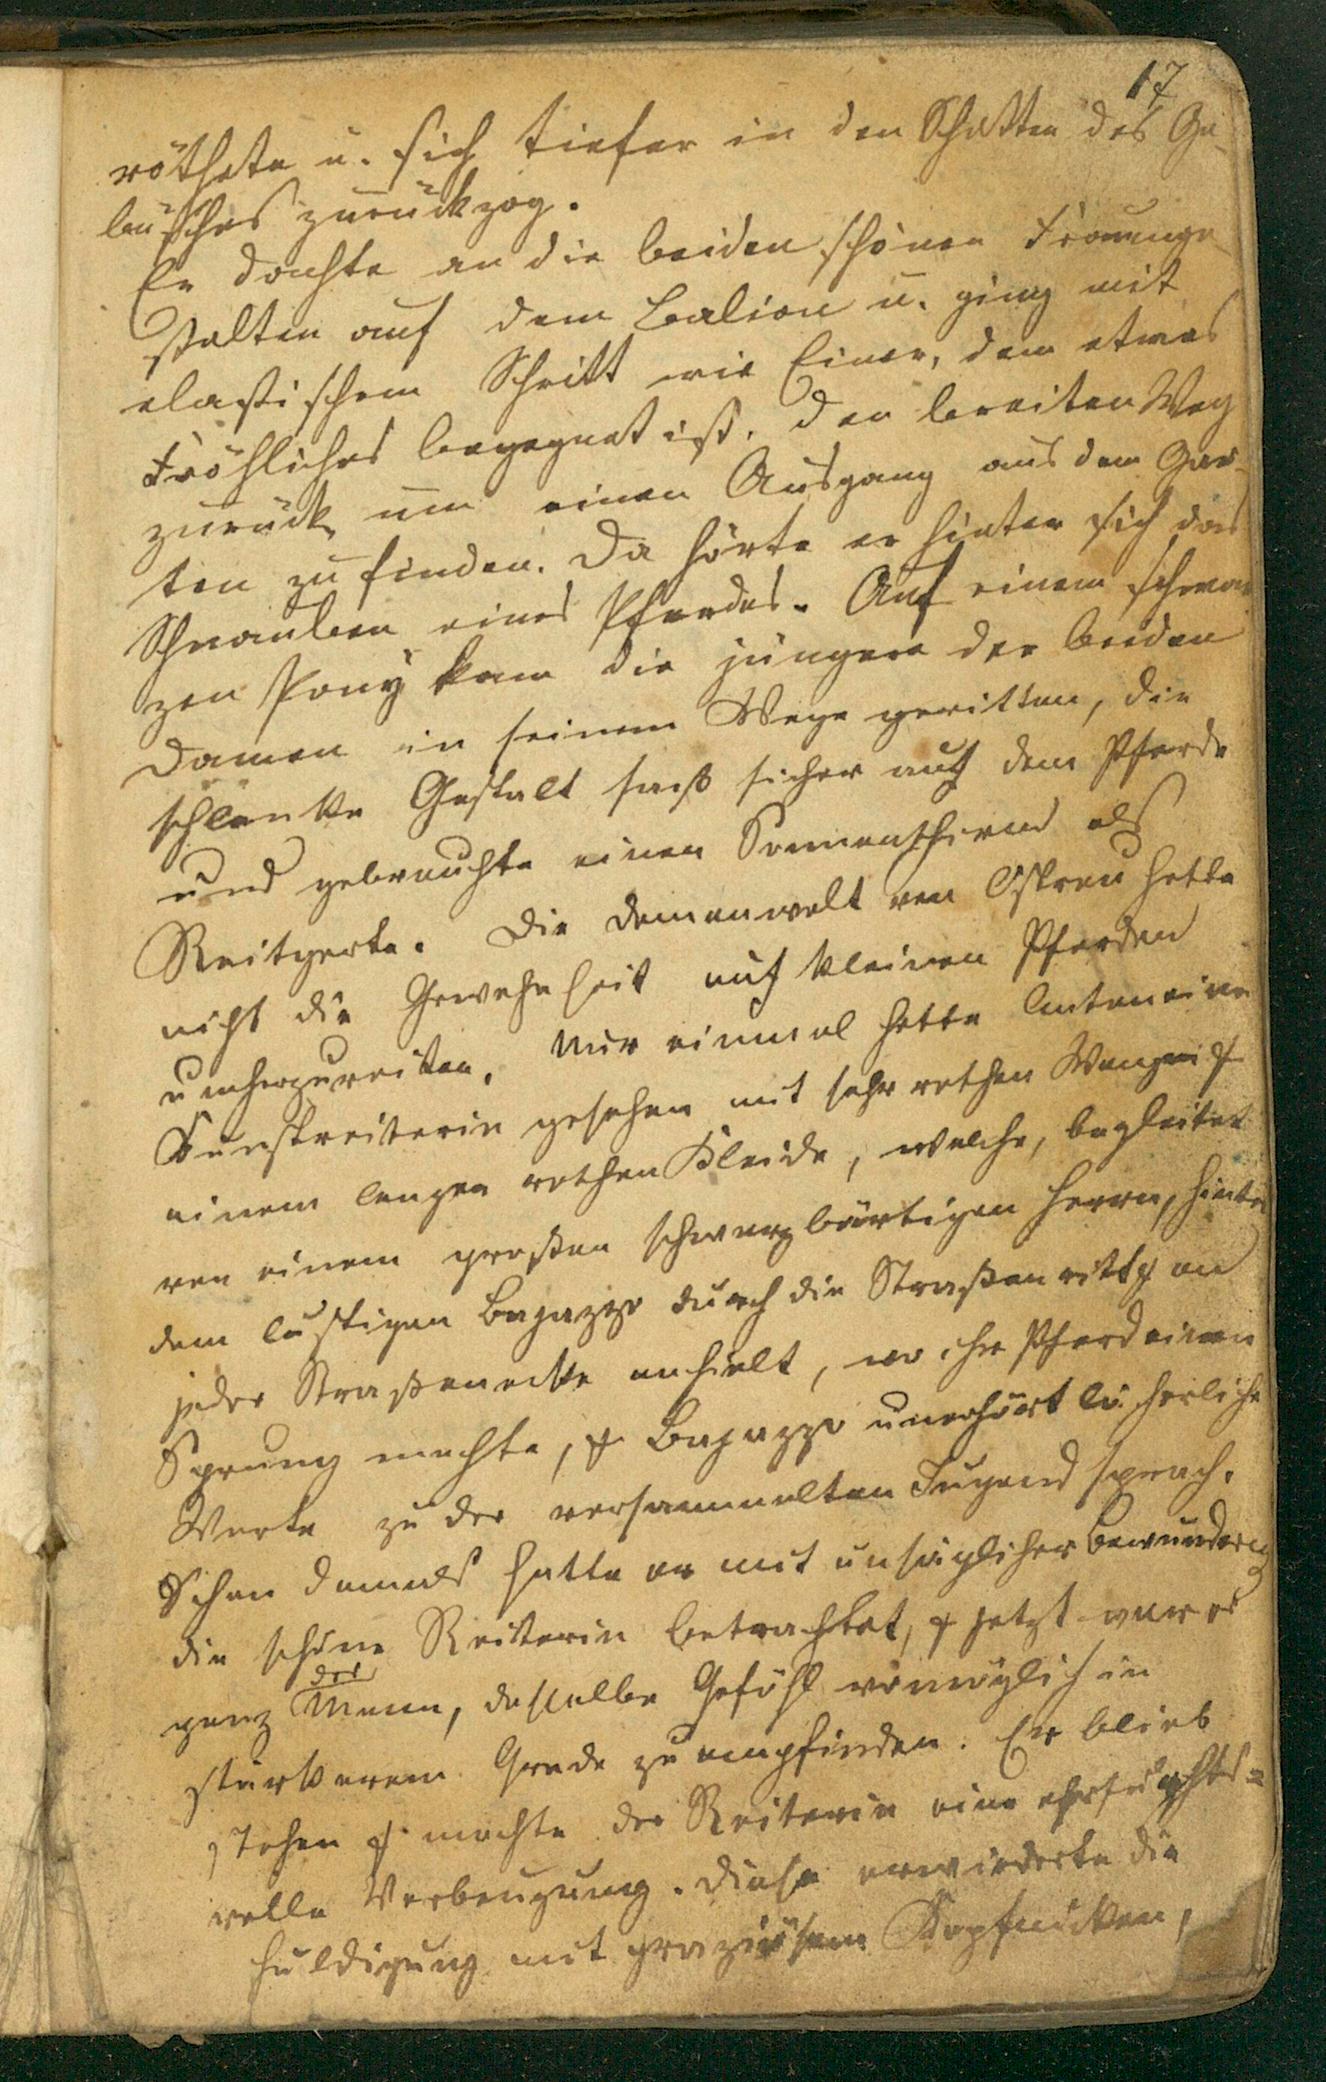 17
röthete u. sich tiefer in den Schatten des Ge-
büsches zurückzog.
Er dachte an die beiden schönen Frauenge-
stalten auf dem Balion u. ging mit
elastischem Schritt wie Einer, dem etwas
Fröhliches begegnet ist, den breiten Weg
zurück um einen Ausgang aus dem Gar-
ten zu finden. Da hörte er hinter sich das
Schnauben eines Pferdes. Auf einem schwar
zen Pony kam die jüngere der beiden
Damen in seinem Wege geritten, die
schlanke Gestalt saß sicher auf dem Pferde
und gebrauchte einen Sonnenschirm als
Reitgerte. Die Damenwelt von Ostrau hatte
nicht die Gewohnheit auf kleinen Pferden
umherzureiten. Nur einmal hatte Anton eine
Kunstreiterin gesehen mit sehr rothen Wangen &
einem langen rothen Kleide, welche, begleitet
von einem großen schwarzbärtigen Herrn, hinter
dem lustigen Bajazzo durch die Straßen ritt & an
jeder Straßenecke anhielt, wo ihr Pferd einen
Sprung machte, & Bajazzo unerhört lächerliche
Worte zu der versammelten Jugend sprach.
Schon damals hatte er mit unsäglicher Bewunderung
die schöne Reiterin betrachtet, & jetzt war er
ganz der Mann, dasselbe Gefühl womöglich in
stärkerem Grade zu empfinden. Er blieb
stehen & machte der Reiterin eine ehrfurchts=
volle Verbeugung. Diese erwiederte die
Huldigung mit graziösem Kopfnicken,